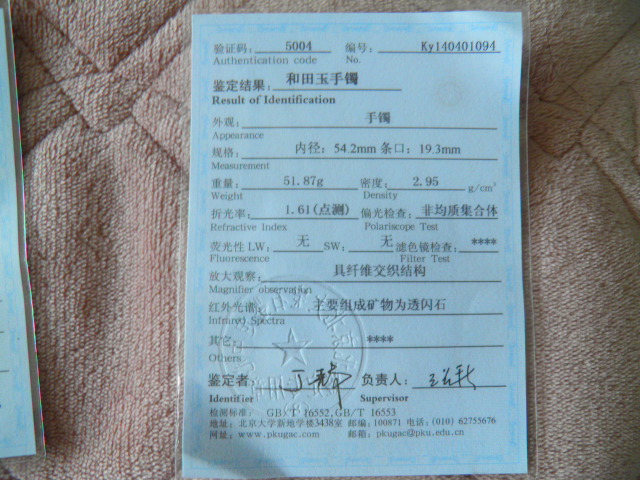 验证码: 5004 编号: Ky140401094
Authentication code No.
鉴定结果: 和田玉手镯
Result of Identification
外观: 手镯
Appearance
规格: 内径: 54.2mm 条口: 19.3mm
Measurement
重量: 51.87g 密度: 2.95 g/cm³
Weight Density
折光率: 1.61(点测) 偏光检查: 非均质集合体
Refractive Index Polariscope Test
荧光性 LW: 无 SW: 无 滤色镜检查: ****
Fluorescence Filter Test
放大观察: 具纤维交织结构
Magnifier observation
红外光谱: 主要组成矿物为透闪石
Infrared Spectra
其它: ****
Others
鉴定者: 负责人:
Identifier Supervisor
检测标准: GB/T 16552,GB/T 16553
地址: 北京大学新地学楼3438室 邮编: 100871 电话: (010) 62755676
网址: www.pkugac.com 邮箱: pkugac@pku.edu.cn